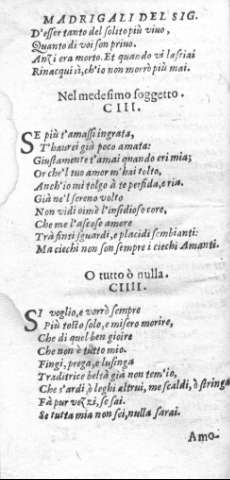 MADRIGALI DEL SIG.
D'esser tanto del solito più viuo,
Quanto di voi son priuo.
Anzi era morto. Et quando vi lasciai
Rinacqui sì, ch'io non morrò più mai.
Nel medesimo soggetto.
CIII.
SE più t'amassi ingrata,
T'haurei già poco amata:
Giustamente t'amai quando eri mia;
Or che'l tuo amor m'hai tolto,
Anch'io mi tolgo à te perfida, e ria.
Già ne'l sereno volto
Non vidi oimè l'insidioso core,
Che me l'ascose amore
Trà finti sguardi, e placidi sembianti:
Ma ciechi non son sempre i ciechi Amanti.
O tutto ò nulla.
CIIII.
SI voglio, e vorrò sempre
Più tosto solo, e misero morire,
Che di quel ben gioire
Che non è tutto mio.
Fingi, prega, e lusinga
Traditrice beltà già non tem'io,
Che s'ardi ò leghi altrui, me scaldi, ò stringa
Fà pur vezzi, se sai.
Se tutta mia non sei, nulla sarai.
Amo-